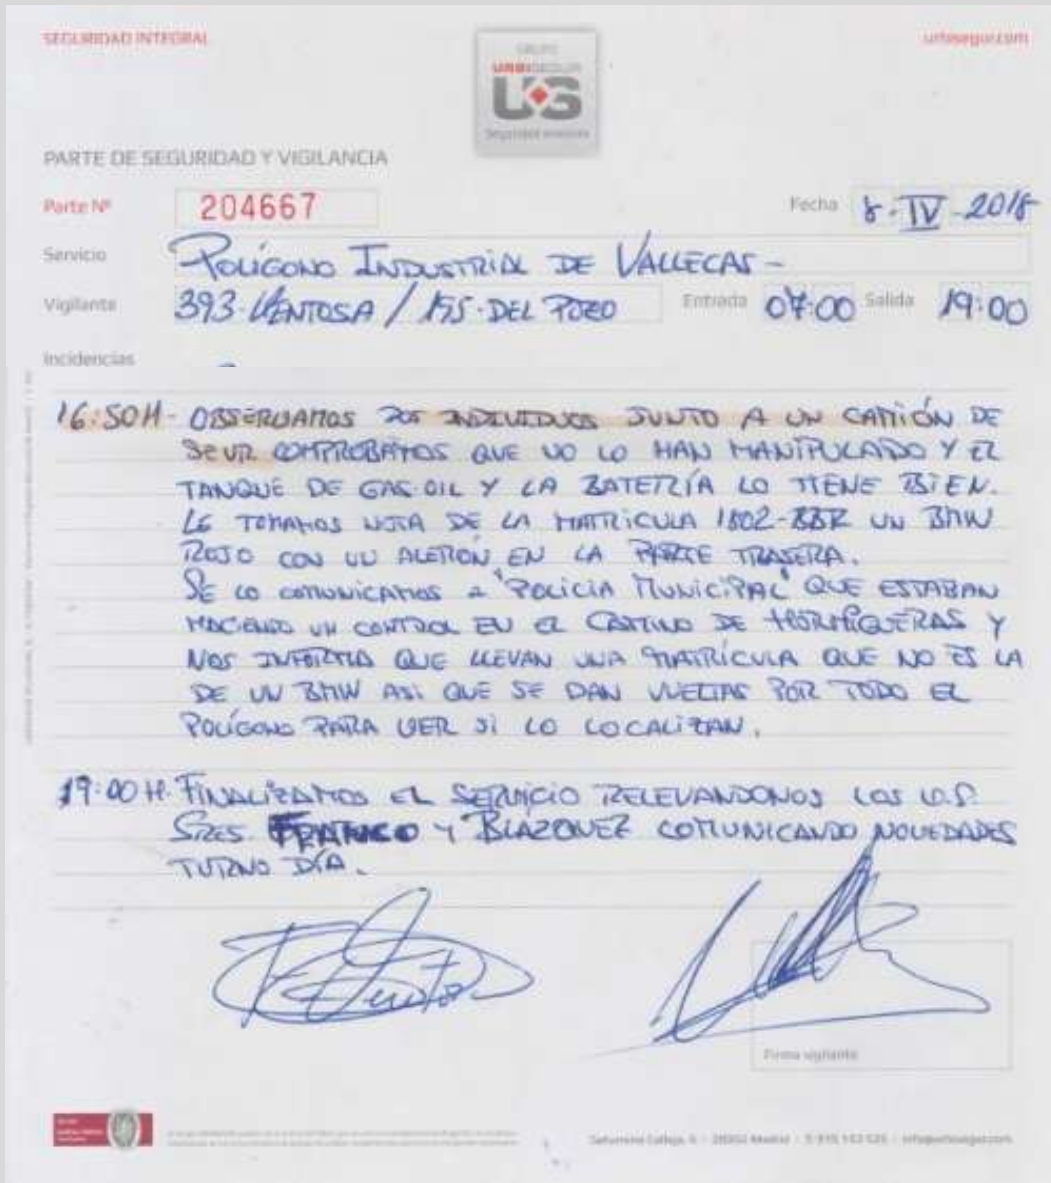 SEGURIDAD INTEGRAL
urbisegur.com
GRUPO
URBISEGUR
UG
PARTE DE SEGURIDAD Y VIGILANCIA
Parte Nº 204667
Fecha 8-IV-2018
Servicio POLÍGONO INDUSTRIAL DE VALLECAS -
Vigilante 393-VENTOSA / 195-DEL POZO Entrada 07:00 Salida 19:00
Incidencias
16:50H- OBSERVAMOS DOS INDIVIDUOS JUNTO A UN CAMIÓN DE
SEUR COMPROBAMOS QUE NO LO HAN MANIPULADO Y EL
TANQUE DE GAS-OIL Y LA BATERÍA LO TIENE BIEN.
LE TOMAMOS NOTA DE LA MATRICULA 1802-BBR UN BMW
ROJO CON UN ALERÓN EN LA PARTE TRASERA.
SE LO COMUNICAMOS a "POLICIA MUNICIPAL" QUE ESTABAN
HACIENDO UN CONTROL EN EL CAMINO DE HORMIGUERAS Y
NOS INFORMA QUE LLEVAN UNA MATRÍCULA QUE NO ES LA
DE UN BMW ASI QUE SE DAN VUELTAS POR TODO EL
POLÍGONO PARA VER SI LO LOCALIZAN.
19:00 H. FINALIZAMOS EL SERVICIO RELEVANDONOS LOS V.S.
SRES. FRANCO Y BLAZQUEZ COMUNICANDO NOVEDADES
TURNO DÍA.
Firma vigilante